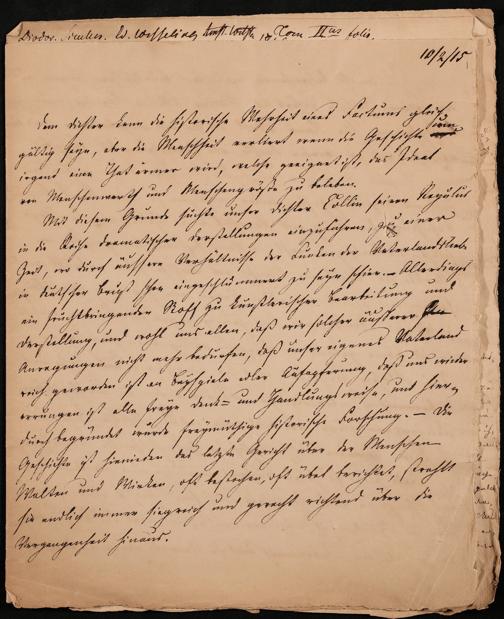 Diodor. Siculus. Ed. Wesseling Amst. Tom IIus folio.
10/2/15
Dem Dichter kann die historische Wahrheit eines Factums gleich
gültig seyn, aber die Menschheit verliert wenn die Geschichte um
irgend eine That ärmer wird, welche geeignet ist, das Ideal
von Menschenwerth und Menschengröße zu beleben.
Mit diesem Grunde suchte unser Dichter Collin seinen Regulus
in die Reihe dramatischer Darstellungen einzuführen, zu einer
Zeit, wo durch äussere Verhältnisse der Funken der Vaterlandsliebe
in deutscher Brust schon eingeschlummert zu seyn schien. – Allerdings
ein fruchtbringender Stoff zu künstlerischer Bearbeitung und
Darstellung, und wohl uns allen, daß wir solcher äusserer
Anregungen nicht mehr bedürfen, daß unser eigenes Vaterland
reich geworden ist an Beyspielen edler Aufopferung, daß uns wieder
errungen ist alle freye Denk- und Handlungsweise, und hier-
durch begründet wurde freymüthige historische Forschung. – Die
Geschichte ist hienieden das letzte Gericht über der Menschen
Walten und Wirken, oft bestochen, oft übel berichtet, strahlt
sie endlich immer siegreich und gerecht richtend über die
Vergangenheit hinaus.